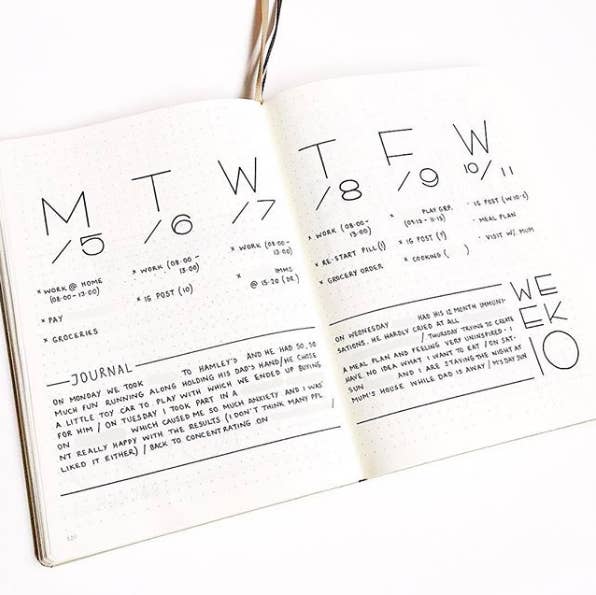 M
/5
× WORK @ HOME
(08:00-13:00)
× PAY
× GROCERIES
T
/6
× WORK (08:00-
13:00)
× IG POST (10)
W
/7
× WORK (08:00-
13:00)
× IMMS
@ 15:20 (DR)
JOURNAL
ON MONDAY WE TOOK TO HAMLEY'S AND HE HAD SO, SO
MUCH FUN RUNNING ALONG HOLDING HIS DAD'S HAND/HE CHOSE
A LITTLE TOY CAR TO PLAY WITH WHICH WE ENDED UP BUYING
FOR HIM / ON TUESDAY I TOOK PART IN A
ON WHICH CAUSED ME SO MUCH ANXIETY AND I WAS
NT REALLY HAPPY WITH THE RESULTS (I DON'T THINK MANY PPL
LIKED IT EITHER) / BACK TO CONCENTRATING ON /
T
/8
× WORK (08:00-
13:00)
× RE-START FILL(!)
× GROCERY ORDER
F
/9
× PLAY GRP.
× IG POST (9)
× COOKING ( )
W
10/11
- IG POST (W.10-S)
- MEAL PLAN
- VISIT W/ MUM
WE
EK
10
ON WEDNESDAY HAD HIS 12 MONTH IMMUNI-
SATIONS. HE HARDLY CRIED AT ALL
/ THURSDAY TRYING TO CREATE
A MEAL PLAN AND FEELING VERY UNINSPIRED - I
HAVE NO IDEA WHAT I WANT TO EAT / ON SAT-
SUN AND I ARE STAYING THE NIGHT AT
MUM'S HOUSE WHILE DAD IS AWAY / M'S DAY SUN